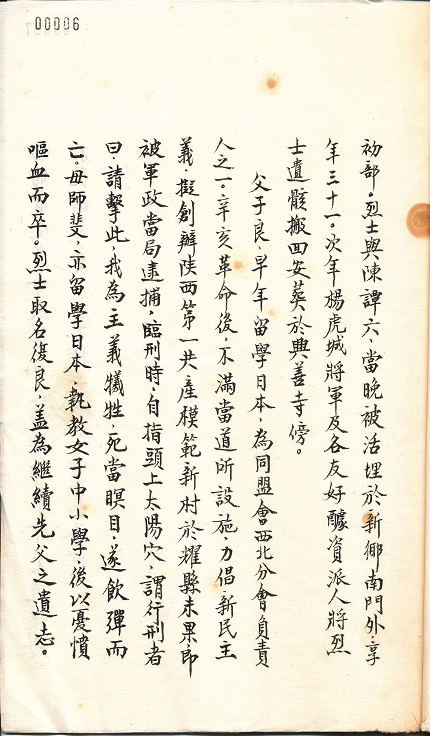 00006
初部。烈士與陳譚六、當晚被活埋於新鄉南門外、享
年三十一。次年楊虎城將軍及各友好醵資派人將烈
士遺骸搬回安葬於興善寺傍。
父子良、早年留學日本、為同盟會西北分會負責
人之一。辛亥革命後、不滿當道所設施、力倡新民主
義、擬創辦陝西第一共產模範新村於耀縣未果、即
被軍政當局逮捕、臨刑時、自指頭上太陽穴、謂行刑者
曰、請擊此、我為主義犧牲、死當瞑目、遂飲彈而
亡。母師斐、亦留學日本、執教女子中小學、後以憂憤
嘔血而卒。烈士取名復良、蓋為繼續先父之遺志。